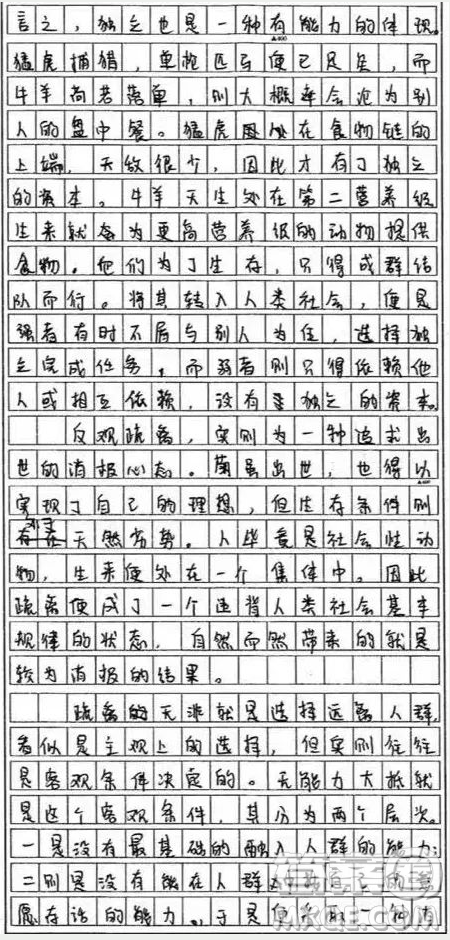 言之，独立也是一种有能力的体现。
▲400
猛虎捕猎，单枪匹马便已足矣，而
牛羊倘若落单，则大概率会沦为别
人的盘中餐。猛虎因处在食物链的
上端，天敌很少，因此才有了独立
的资本。牛羊天生处在第二营养级
生来就为更高营养级的动物提供
食物。他们为了生存，只得成群结
队而行。将其转入人类社会，便是
强者有时不屑与别人为伍，选择独
立完成任务，而弱者则只得依赖他
人或相互依赖，没有独立的资本。
反观疏离，实则为一种追求出
世的消极心态。虽出世，也得以
▲600
实现了自己的理想，但生存条件则
处于天然劣势。人毕竟是社会性动
物，生来便处在一个集体中。因此
疏离便成了一个违背人类社会基本
规律的状态，自然而然带来的就是
较为消极的结果。
疏离的无非就是选择远离人群，
看似是主观上的选择，但实则往往
是客观条件决定的。无能力大抵就
是这个客观条件，其分为两个层次。
一是没有最基础的融入人群的能力；
二则是没有能在人群
愿存活的能力。于是便
MXQE.COM